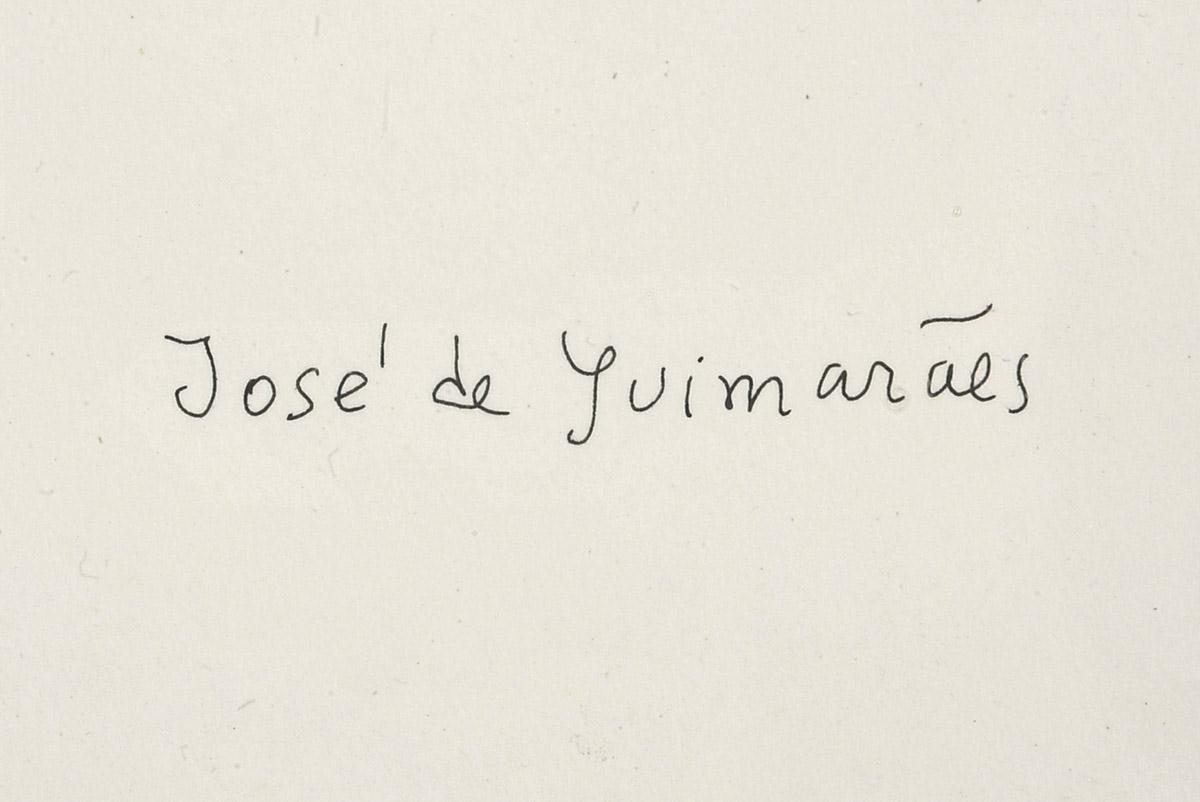 José de Guimarães